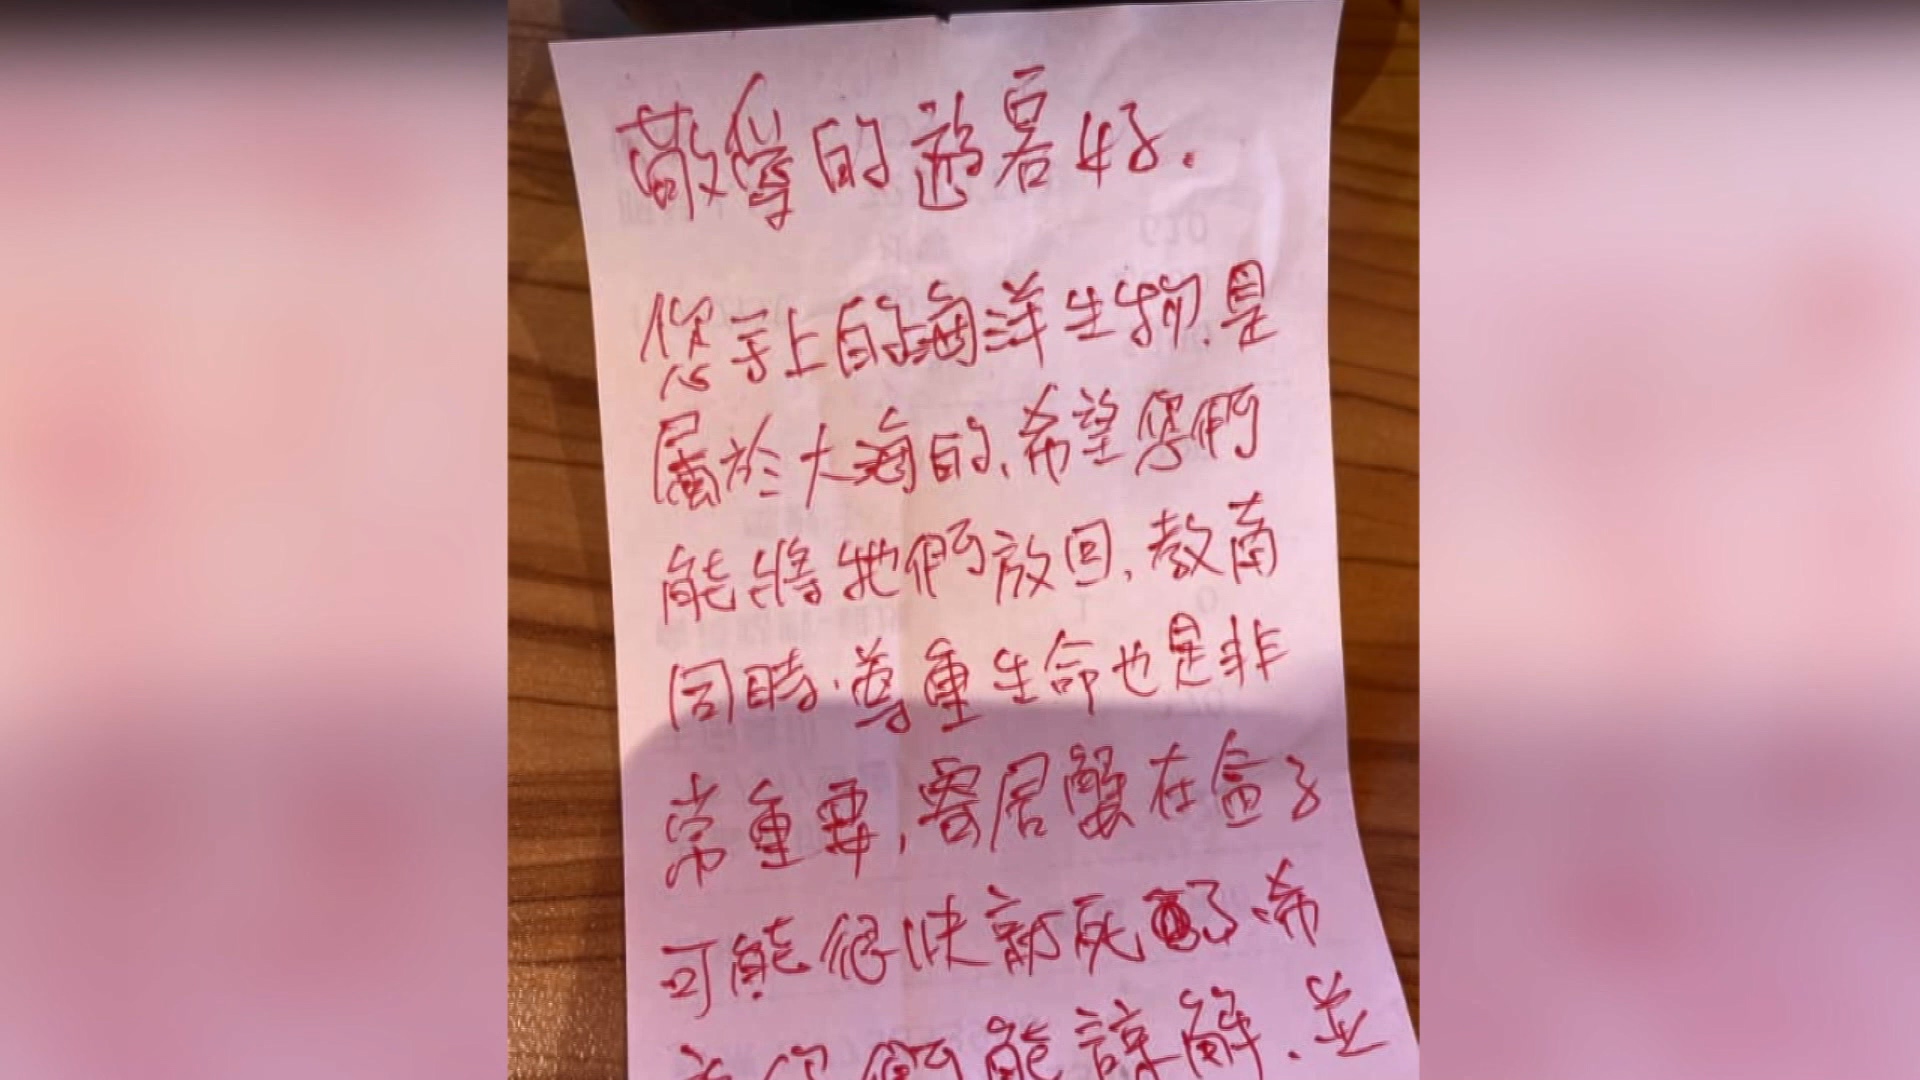 敬愛的遊客好.
您手上的海洋生物.是
屬於大海的、希望您們
能將牠們放回,教育
同時.尊重生命也是非
常重要,寄居蟹在盒子
可能很快就死了、希
望你們能諒解.並